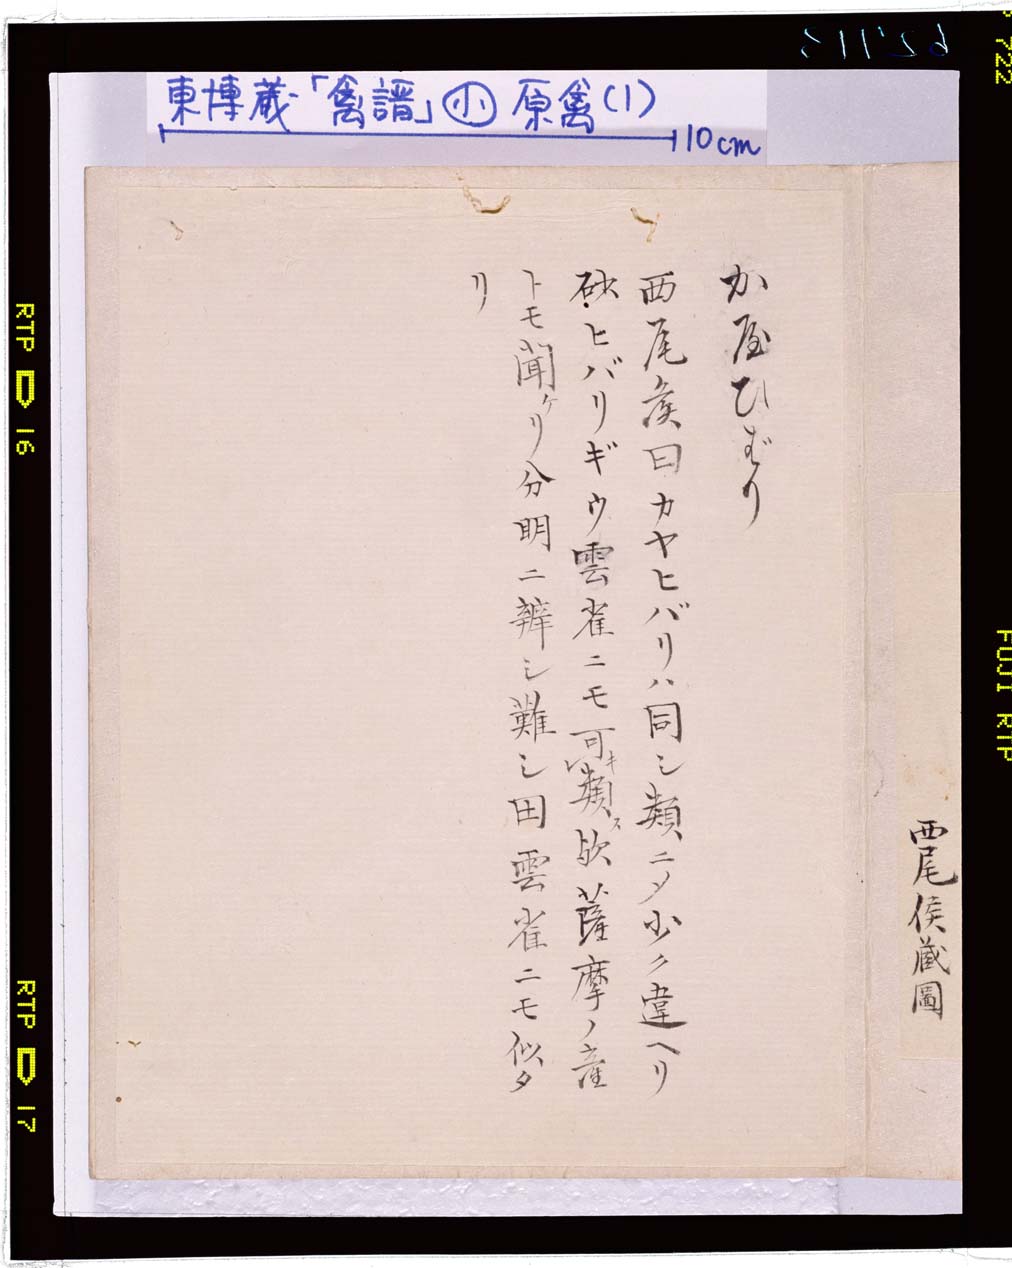 東博蔵「禽譜」㊥ 原禽(1)
10cm
西尾侯蔵圖
か屋ひばり
西尾侯曰カヤヒバリハ同シ類ニメ少ク違ヘリ
砂ヒバリギウ雲雀ニモ可キ類ス欤薩摩ノ産
トモ聞ケリ分明ニ辨シ難シ田雲雀ニモ似タ
リ
RTP 16
RTP 17
722
FUJI RTP